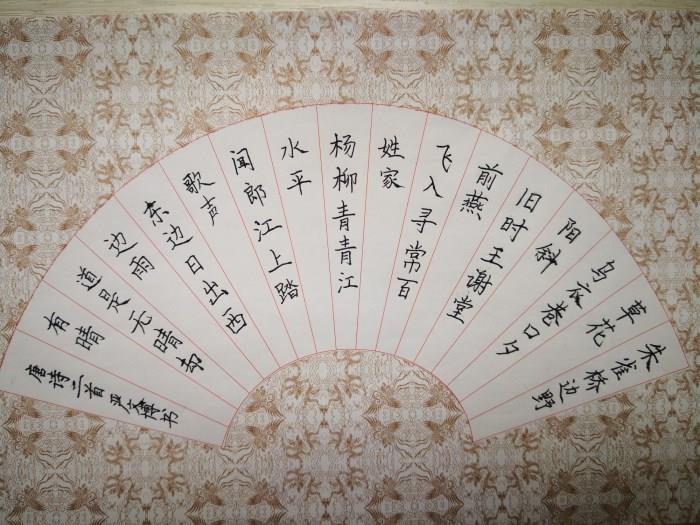 朱雀桥边野
草花
乌衣巷口夕
阳斜
旧时王谢堂
前燕
飞入寻常百
姓家
杨柳青青江
水平
闻郎江上踏
歌声
东边日出西
边雨
道是无晴却
有晴
唐诗二首 博书